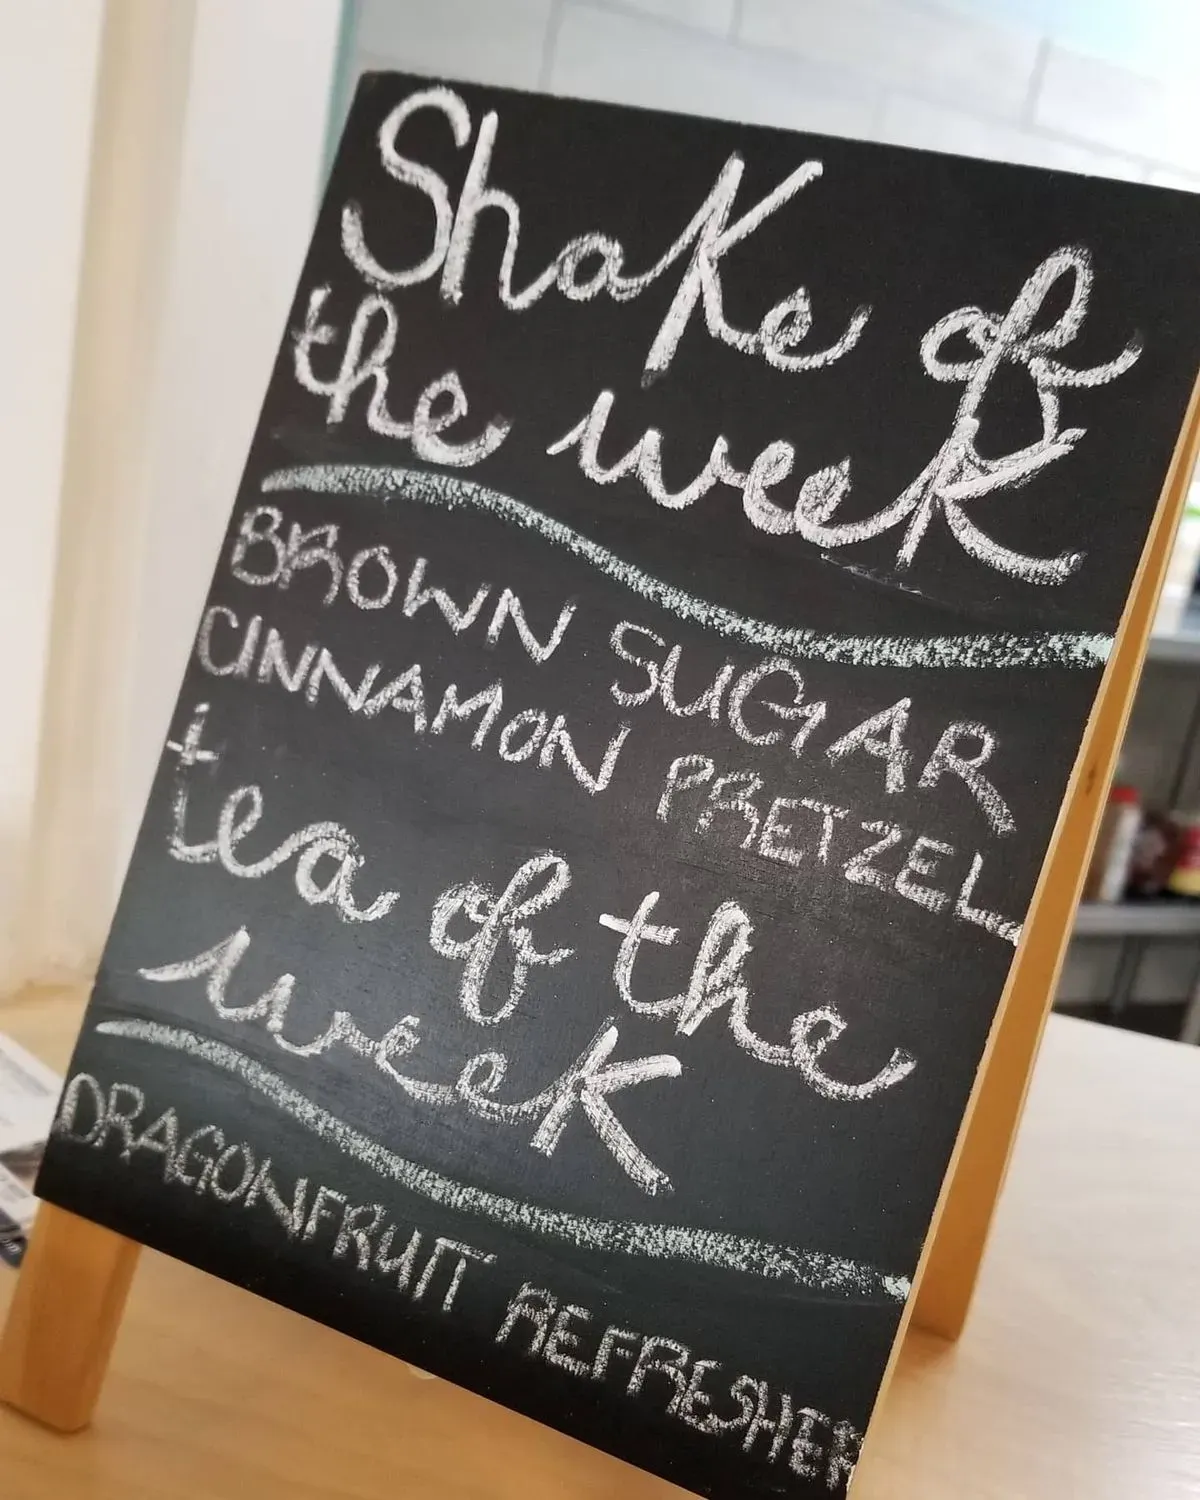 Shake of
the week
BROWN SUGAR
CINNAMON PRETZEL
tea of the
week
DRAGONFRUIT REFRESHER